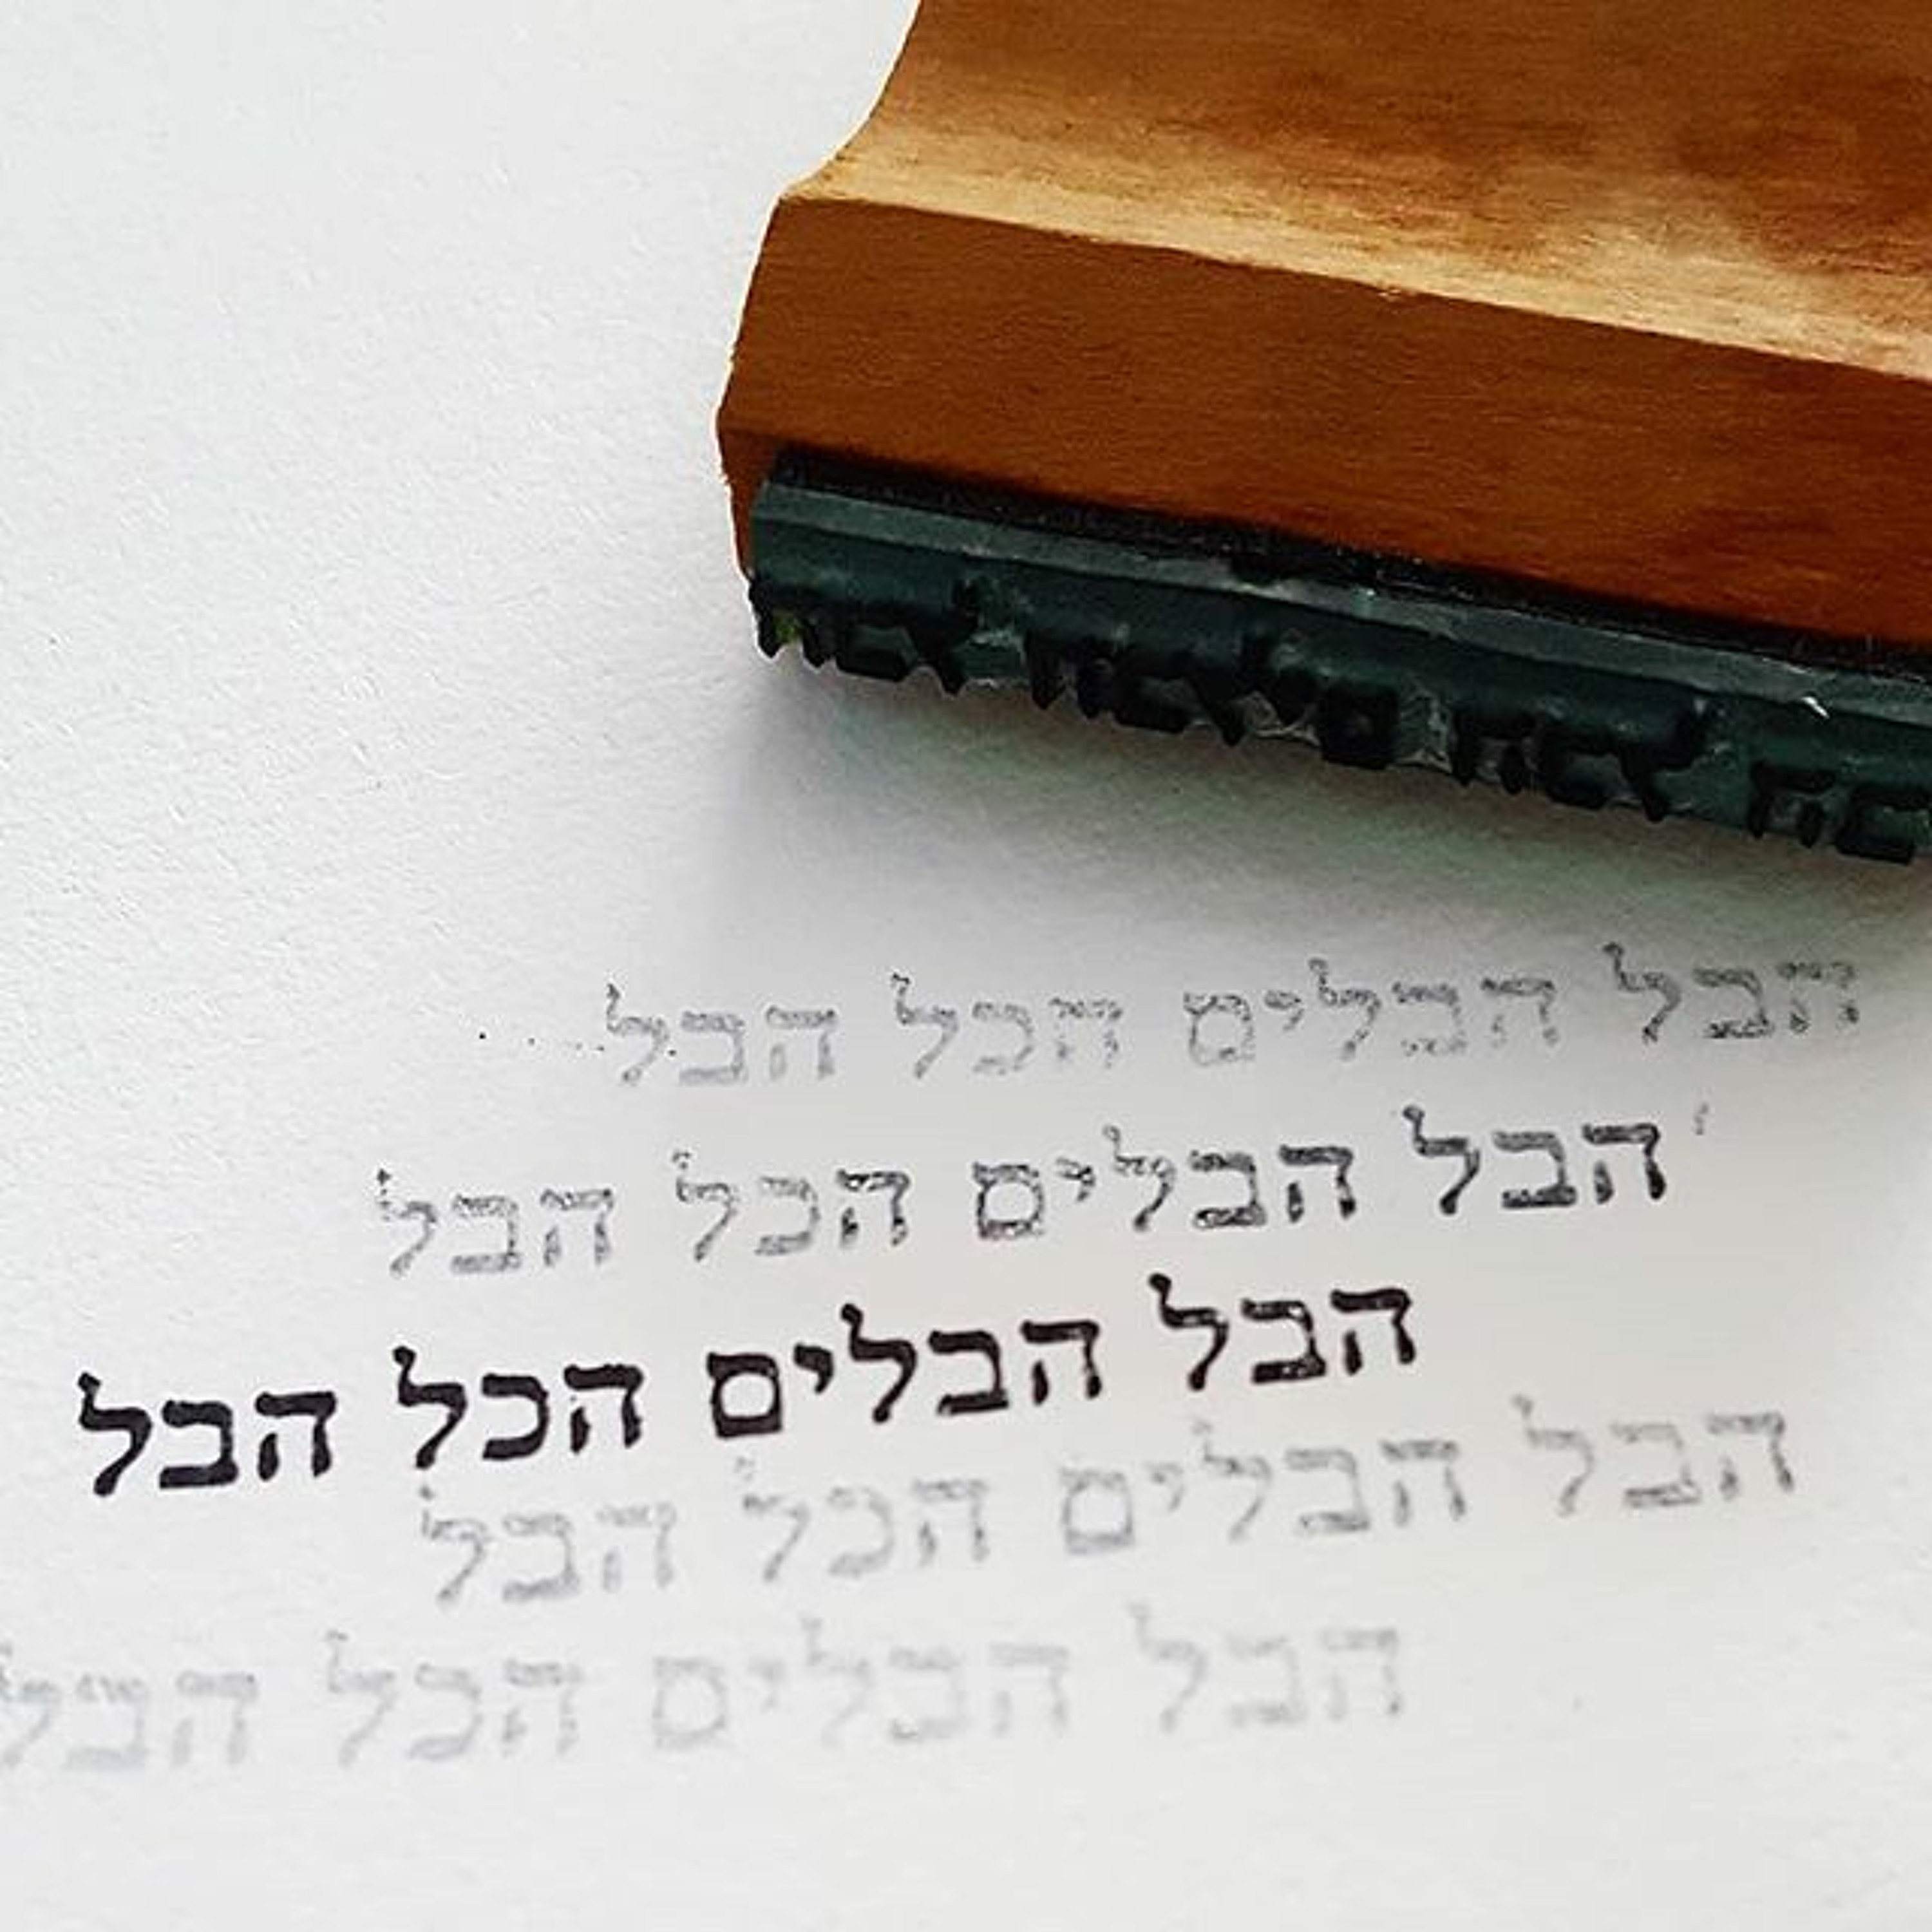 הבל הבלים הכל הבל
הבל הבלים הכל הבל
הבל הבלים הכל הבל
הבל הבלים הכל הבל
הבל הבלים הכל הבל